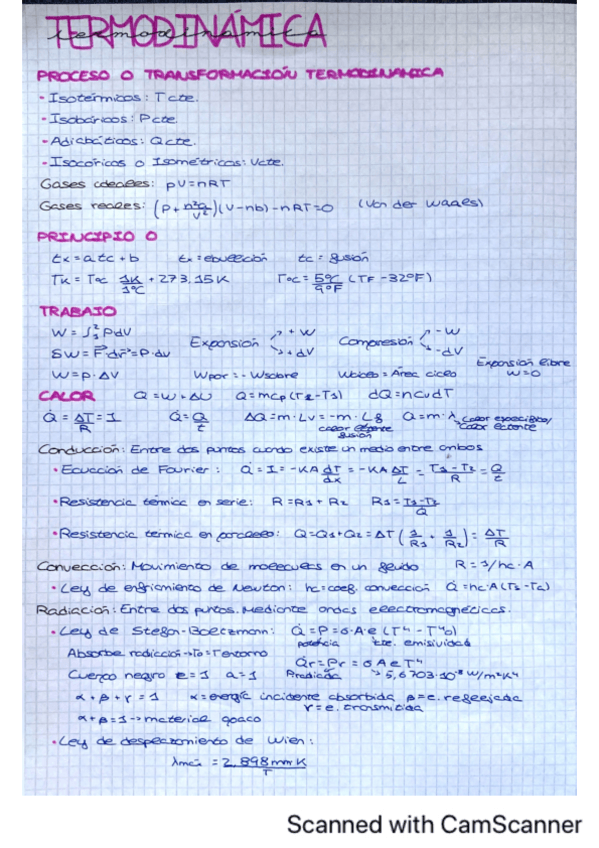 TERMODINÁMICA
termodinámica
PROCESO O TRANSFORMACIÓN TERMODINAMICA
- Isotérmicos: T cte.
- Isobáricos: P cte.
- Adiabáticos: Q cte.
- Isocóricos o Isométricos: V cte.
Gases ideales: pV=nRT
Gases reales: (P+n²a/V²)(V-nb)-nRT=0 (Van der Waals)
PRINCIPIO 0
tx=atc+b tx=ebullición tc=fusión
TK=TºC 1K/1ºC +273,15K TºC=5ºC/9ºF (TF-32ºF)
TRABAJO
W=∫₁² PdV
δW=F dr=P·dV Expansión +W +dV Compresión -W -dV
W=P·ΔV Wpor=-Wsobre Wciclo=Área ciclo Expansión libre W=0
CALOR Q=W+ΔU Q=mcp(T2-T1) dQ=ncvdT
Q̇=ΔT/R=I Q̇=Q/t ΔQ=m·Lv=-m·Lf Q=m·λ calor específico/calor latente
calor latente fusión
Conducción: Entre dos puntos cuando existe un medio entre ambos
• Ecuación de Fourier: Q̇=I=-KA dT/dx=-KA ΔT/L=T1-T2/R=Q/t
• Resistencia térmica en serie: R=R1+R2 R1=T1-T2/Q
• Resistencia térmica en paralelo: Q=Q1+Q2=ΔT(1/R1+1/R2)=ΔT/R
Convección: Movimiento de moléculas en un fluido R=1/hc·A
• Ley de enfriamiento de Newton: hc=coef. convección Q̇=hc·A(Ts-Ta)
Radiación: Entre dos puntos. Mediante ondas electromagnéticas.
• Ley de Stefan-Boltzmann: Q̇=P=σAe(T⁴-T⁴0)
potencia cte. emisividad
Absorbe radiación→T0=Tentorno Q̇r=Pr=σAeT⁴
Cuerpo negro e=1 a=1 Pradiada 5,6703·10⁻⁸ W/m²K⁴
α+β+r=1 α=energía incidente absorbida β=e. reflejada
r=e. transmitida
α+β=1→material opaco
• Ley de desplazamiento de Wien:
λmáx=2,898mmK/T
Scanned with CamScanner